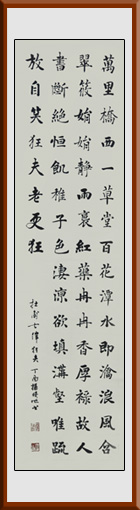 萬里橋西一草堂百花潭水即滄浪風含
翠筱娟娟靜雨裛紅蕖冉冉香厚祿故人
書斷絕恒飢稚子色淒涼欲填溝壑唯疏
放自笑狂夫老更狂
杜甫七律狂夫丁酉